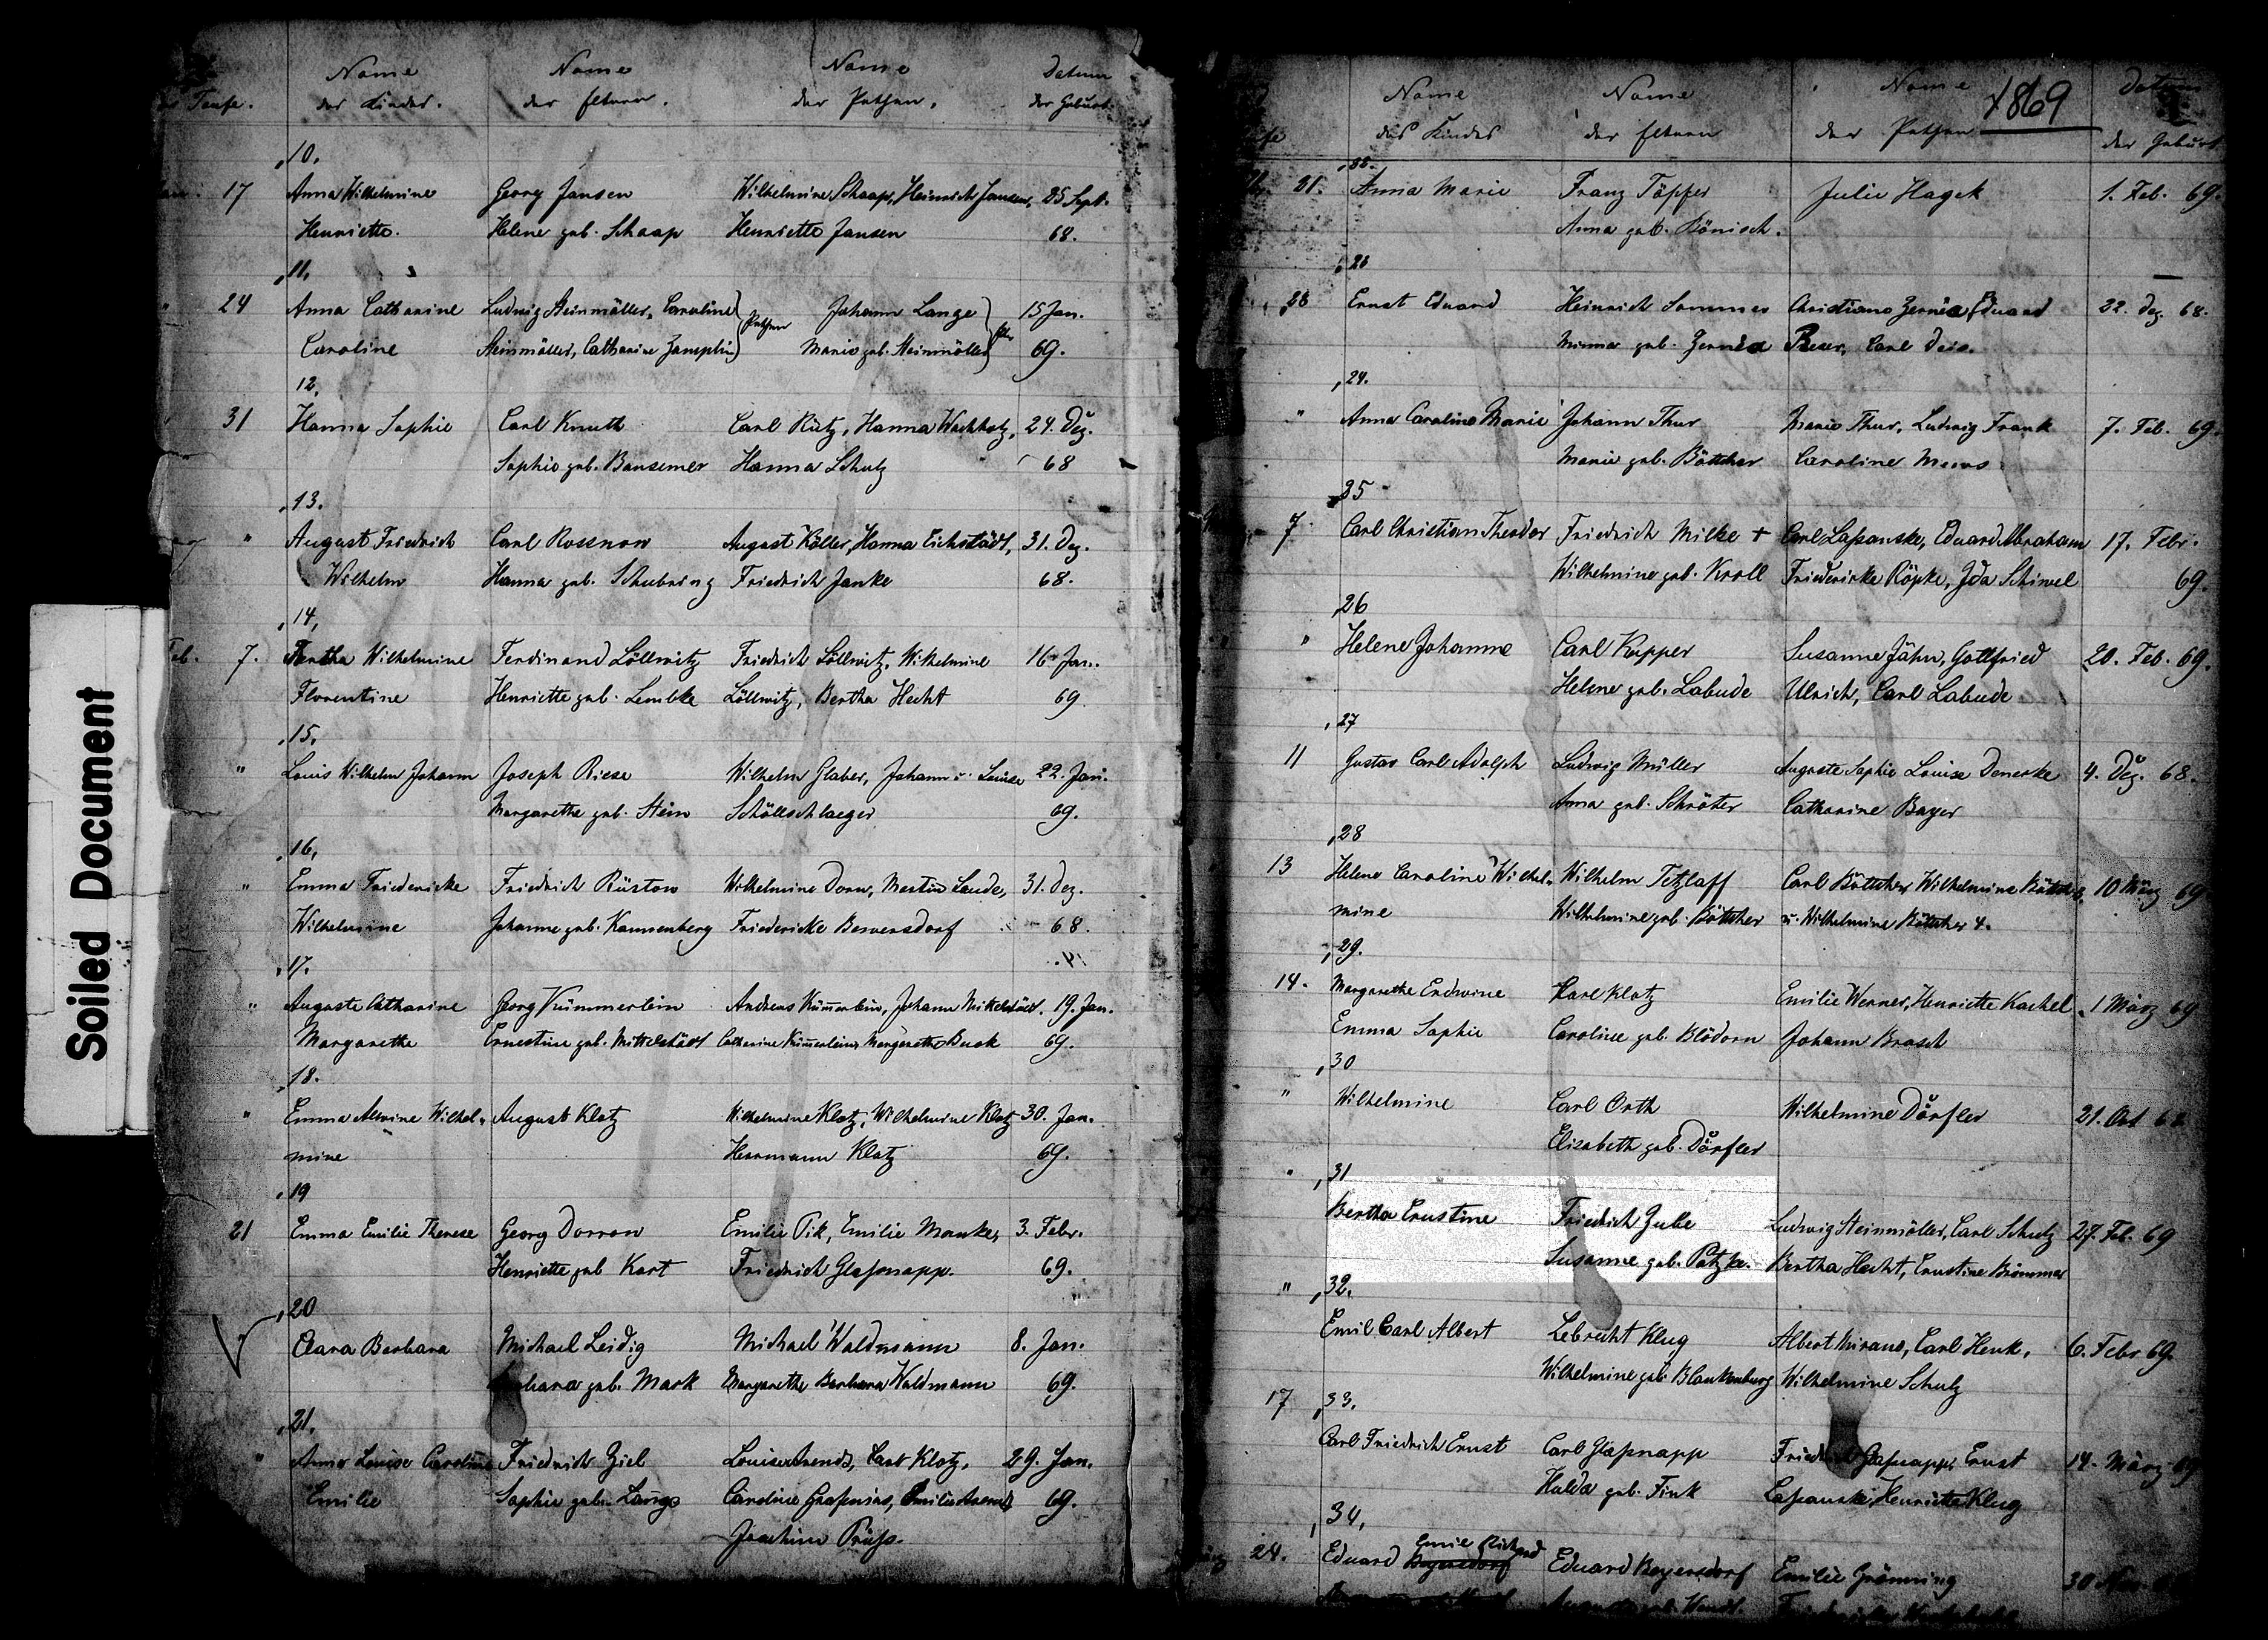 Soiled Document
Taufe.
Name der Kinder.
Name der Eltern.
Name der Pathen.
Datum der Geburt.
10.
17 Anna Wilhelmine Georg Jansen Wilhelmine Schaap, Heinrich Jansen, 25 Sept.
Henriette. Helene geb. Schaap Henriette Jansen 68.
11.
" 24 Anna Catharine Ludwig Steinmöller, Caroline Pathen Johann Lange 15 Jan.
Caroline Steinmöller, Catharine Marie geb. Steinmöller 69.
12.
31 Hanna Sophie Carl Knuth Carl Rütz, Hanna Wachholz, 24. Dez.
Sophie geb. Bansemer Hanna Schulz 68
13.
" August Friedrich Carl Rossnow August Köller, Hanna Eichstädt, 31. Dez.
Wilhelm Hanna geb. Schubring Friedrich Janke 68.
14.
Feb. 7. Bertha Wilhelmine Ferdinand Löllwitz Friedrich Löllwitz, Wilhelmine 16 Jan.
Florentine Henriette geb. Lembke Löllwitz, Bertha Hecht 69
15.
" Louis Wilhelm Johann Joseph Riese Wilhelm Glaber, Johann u. Louise 22. Jan.
Margarethe geb. Stein Schöllschlaeger 69.
16.
" Emma Friedericke Friedrich Rüstow Wilhelmine Dorn, Martin Lande, 31. Dez.
Wilhelmine Johanne geb. Kannenberg Friedericke Beversdorf 68.
17.
" Auguste Catharine Georg Kümmerlein Andreas Kümerlein, Johann Mittelstädt, 19. Jan.
Margarethe Ernestine geb. Mittelstädt Catharine Kümerlein, Margarethe Buck 69.
18.
" Emma Alwine Wilhel- August Klotz Wilhelmine Klotz, Wilhelmine Klotz 30. Jan.
mine Herrmann Klotz 69.
19
21 Emma Emilie Therese Georg Dorrow Emilie Pik, Emilie Manke, 3. Febr.
Henriette geb Kart Friedrich Glaßnapp. 69.
20
Clara Barbara Michael Leidig Michael Waldmann 8. Jan.
Barbara geb. Mark Margarethe Barbara Waldmann 69.
21.
" Anna Louise Caroline Friedrich Ziel Louise Arendt, Carl Klotz, 29. Jan.
Emilie Sophie geb. Lange Caroline Emilie Arendt 69.
Joachim Prüß.
1869
Name des Kindes
Name der Eltern
Name der Pathen
Datum der Geburt
21. Anna Marie Franz Töpper Julie Hagek 1. Feb. 69.
Anna geb. Bönisch.
28 Ernst Eduard Heinrich Sommer Christiane Zernia, Eduard 22. Dez. 68.
Minna geb. Zernia Reser, Carl Deis.
24.
" Anna Caroline Marie Johann Thur Marie Thur, Ludwig Frank 7. Feb. 69.
Marie geb. Böttcher Caroline Mews
25
7. Carl Christian Theodor Friedrich Milke + Carl Laßanske, Eduard Abraham 17. Febr.
Wilhelmine geb. Kroll Friedericke Röpke, Ida Schiwel 69.
26
" Helene Johanne Carl Kupper Susanne Jähn, Gottfried 20. Feb. 69.
Helene geb. Labude Ulrich, Carl Labude
27
11 Gustav Carl Adolph Ludwig Müller Auguste Sophie Louise Denecke 4. Dez. 68.
Anna geb. Schröter Catharine Bayer
28
13 Helene Caroline Wilhel- Wilhelm Tetzlaff Carl Böttcher, Wilhelmine Böttcher, 10 März 69
mine Wilhelmine geb. Böttcher u. Wilhelmine Böttcher 4.
29.
14. Margarethe Erdwine Karl Klotz Emilie Werner, Henriette Kachel 1 März 69
Emma Sophie Caroline geb. Blödorn Johann Brasch
30
" Wilhelmine Carl Orth Wilhelmine Dörfler 21. Oct 68
Elisabeth geb. Dörfler
" 31
Bertha Ernstine Friedrich Zulle Ludwig Steinmöller, Carl Schulz 27. Feb. 69
Susanne geb. Patzke. Bertha Hecht, Ernstine Brümmer
" 32.
Emil Carl Albert Lebrecht Klug Albert Mirano, Carl Henk, 6. Febr 69.
Wilhelmine geb. Blankenburg Wilhelmine Schulz
17 33.
Carl Friedrich Ernst Carl Glaßnapp Friedrich Glaßnapp, Ernst 14. März 69
Hulda geb. Fink Laßanske, Henriette Klug
34.
März 24. Eduard Emil Richard Beyersdorf Eduard Beyersdorf Emilie Grönning 30